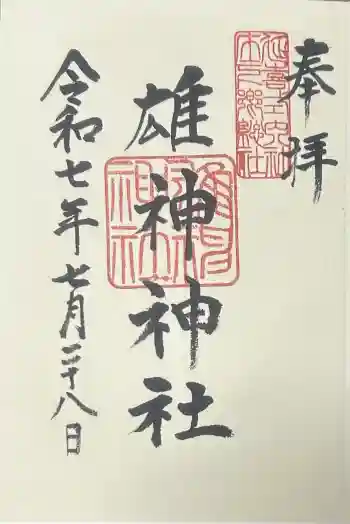 奉拝
雄神神社
令和七年七月二十八日